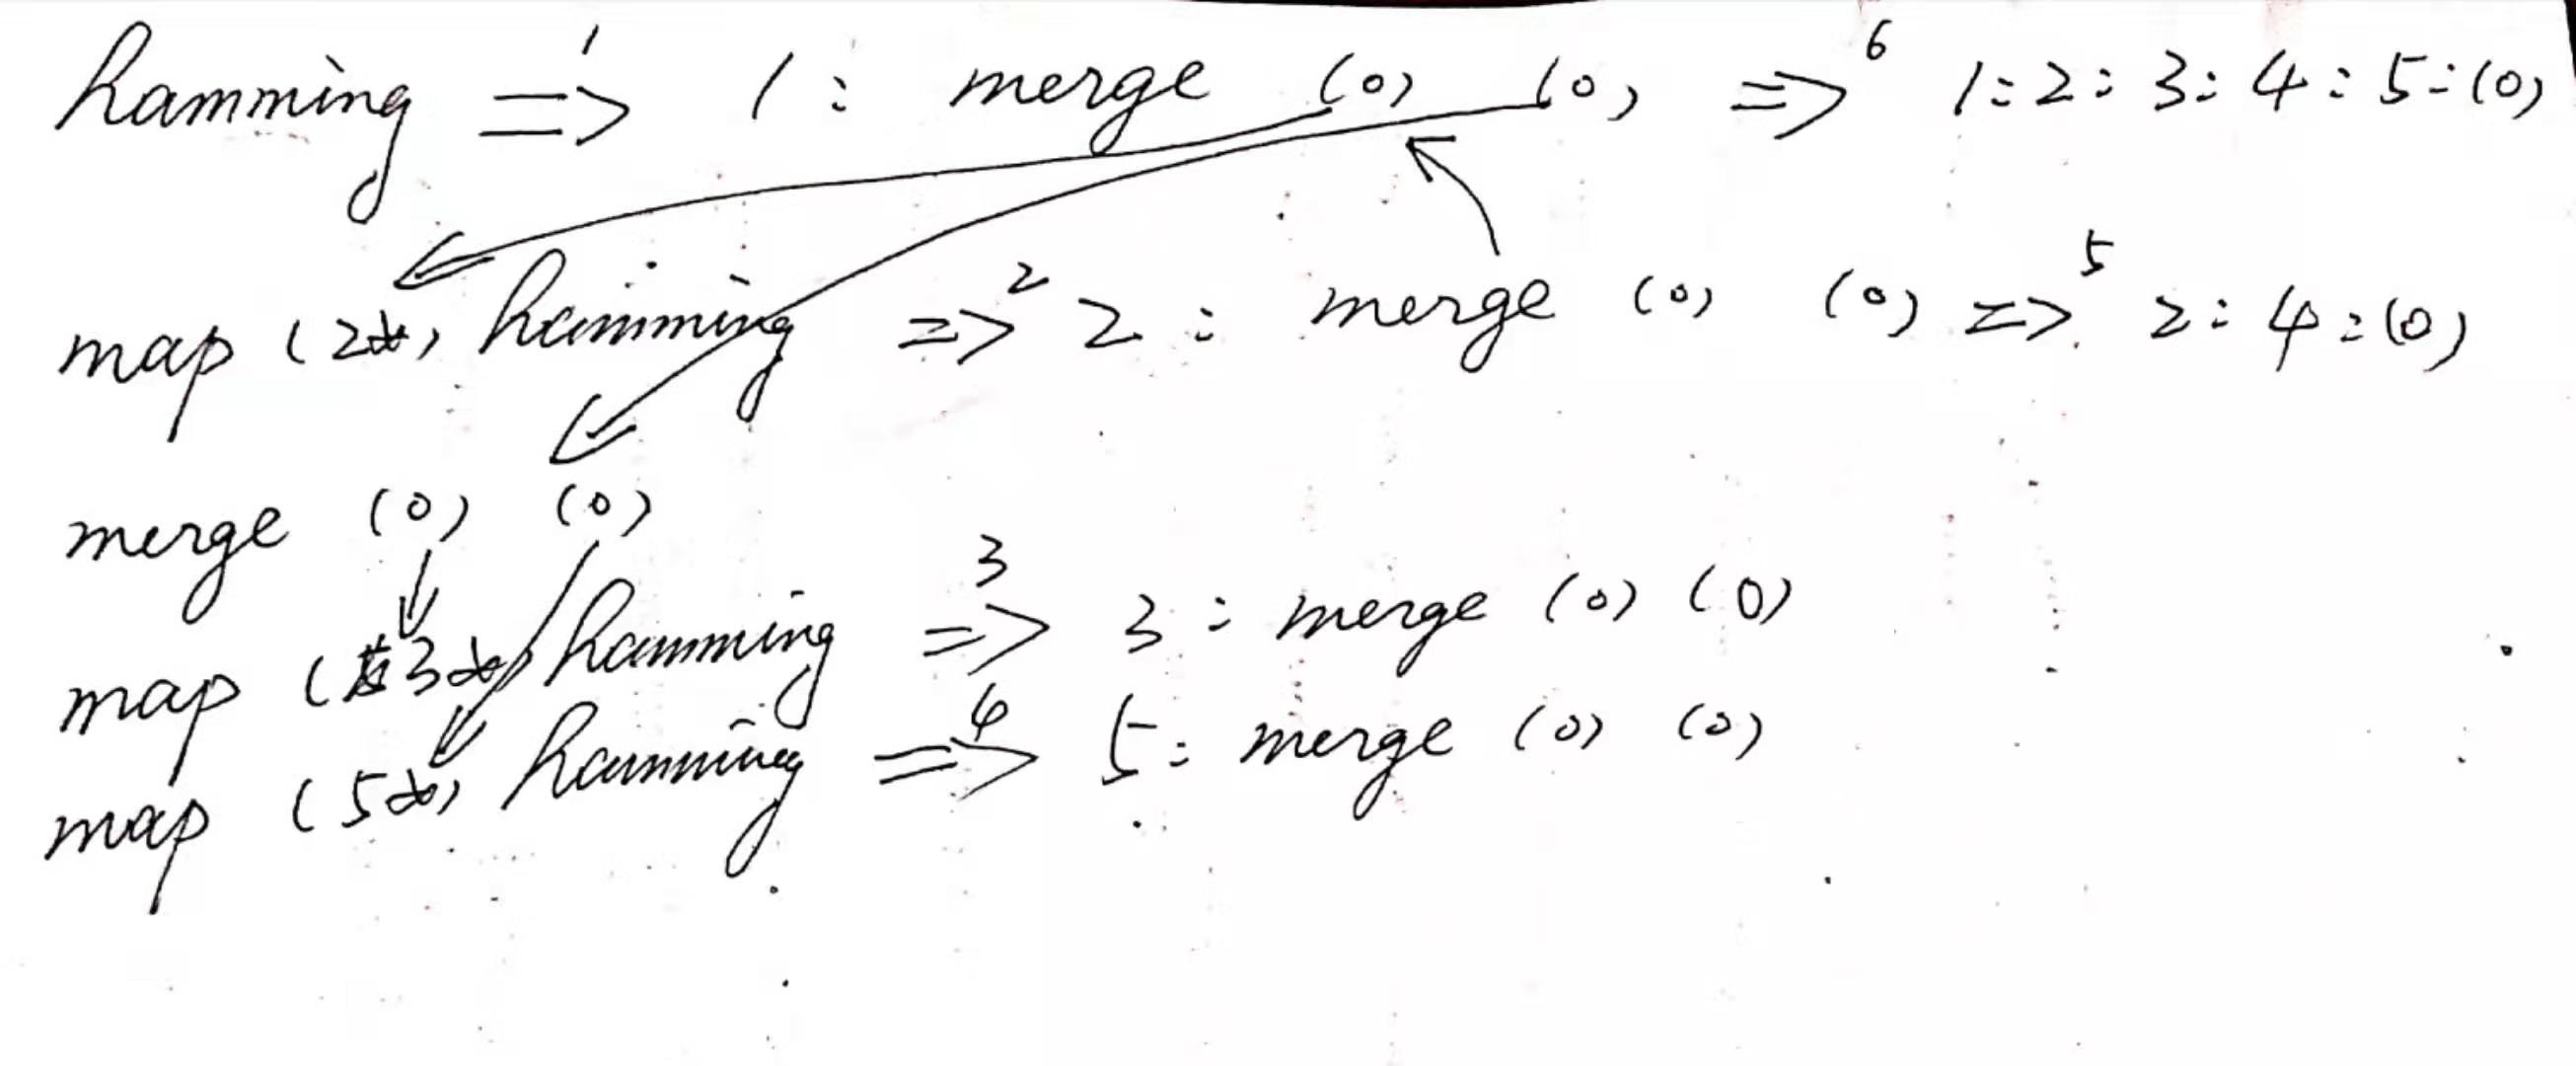 hamming =>1 1 : merge (o) (o) =>6 1:2:3:4:5:(o)
map (2*) hamming =>2 2 : merge (o) (o) =>5 2:4:(o)
merge (o) (o)
map (3*) hamming =>3 3 : merge (o) (o)
map (5*) hamming =>4 5 : merge (o) (o)